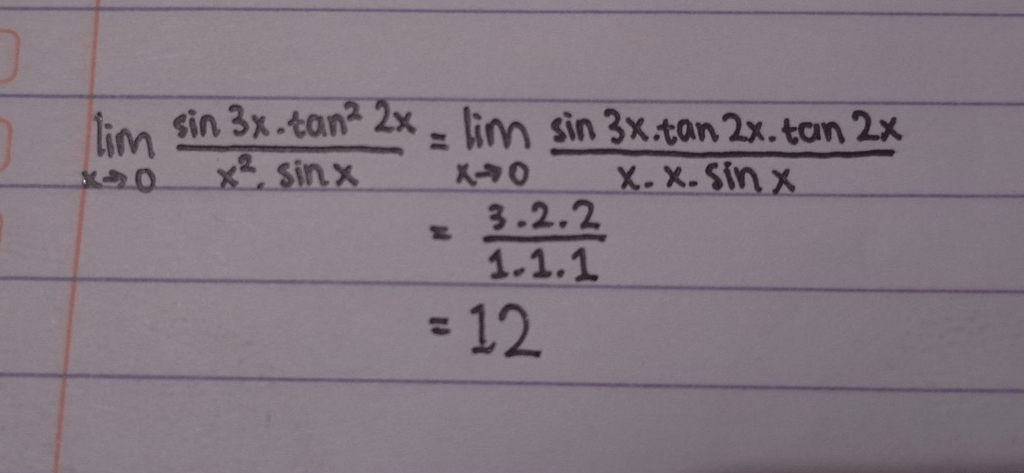 lim x→0 sin 3x.tan² 2x / x². sin x = lim x→0 sin 3x.tan 2x. tan 2x / x. x. sin x
= 3.2.2 / 1.1.1
= 12